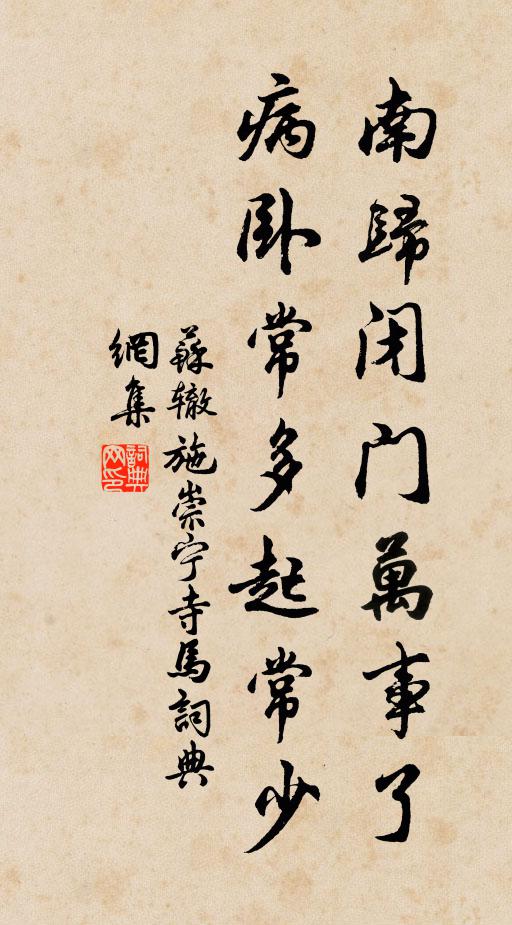 南歸闭门萬事了
病卧常多起常少
蘇辙施崇宁寺馬詞典
網集
詞典网印